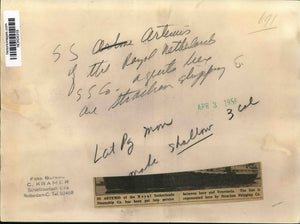 191
S S Artemis
of the Royal Netherland
S S Co. agents here
are Strachan Shipping Co
APR 3 1956
3 col
Lat Pg Mon
made shallow
Foto Bureau
C. KRAMER
Rotterdam C. Tel.
SS ARTEMIS of the Royal Netherlands
Steamship Co. has been put into service
between here and Venezuela. The line is
represented here by Strachan Shipping Co.